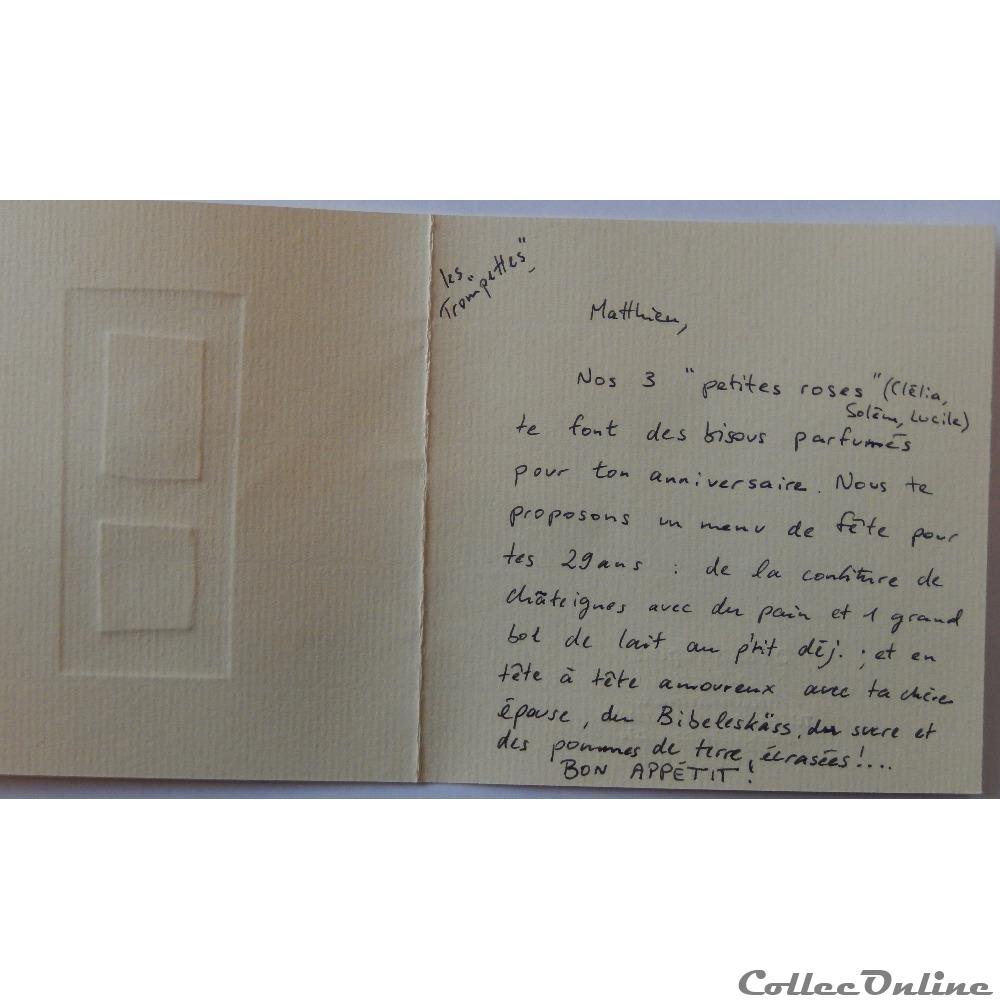 les "
Trompettes"
Matthieu,
Nos 3 "petites roses" (Clélia,
Solène, Lucile)
te font des bisous parfumés
pour ton anniversaire. Nous te
proposons un menu de fête pour
tes 29 ans : de la confiture de
châteignes avec du pain et 1 grand
bol de lait au p'tit déj. ; et en
tête à tête amoureux avec ta chère
épouse, du Bibeleskäss, du sucre et
des pommes de terre écrasées !...
BON APPÉTIT !
CollecOnline